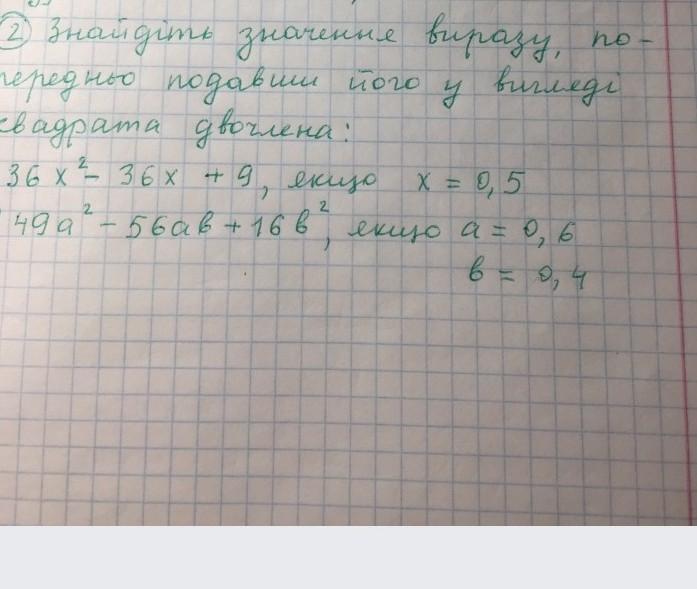 2 Знайдіть значення виразу, по-
передньо подавши його у вигляді
квадрата двочлена:
36x² - 36x + 9, якщо x = 0,5
49a² - 56ab + 16b², якщо a = 0,6
b = 0,4